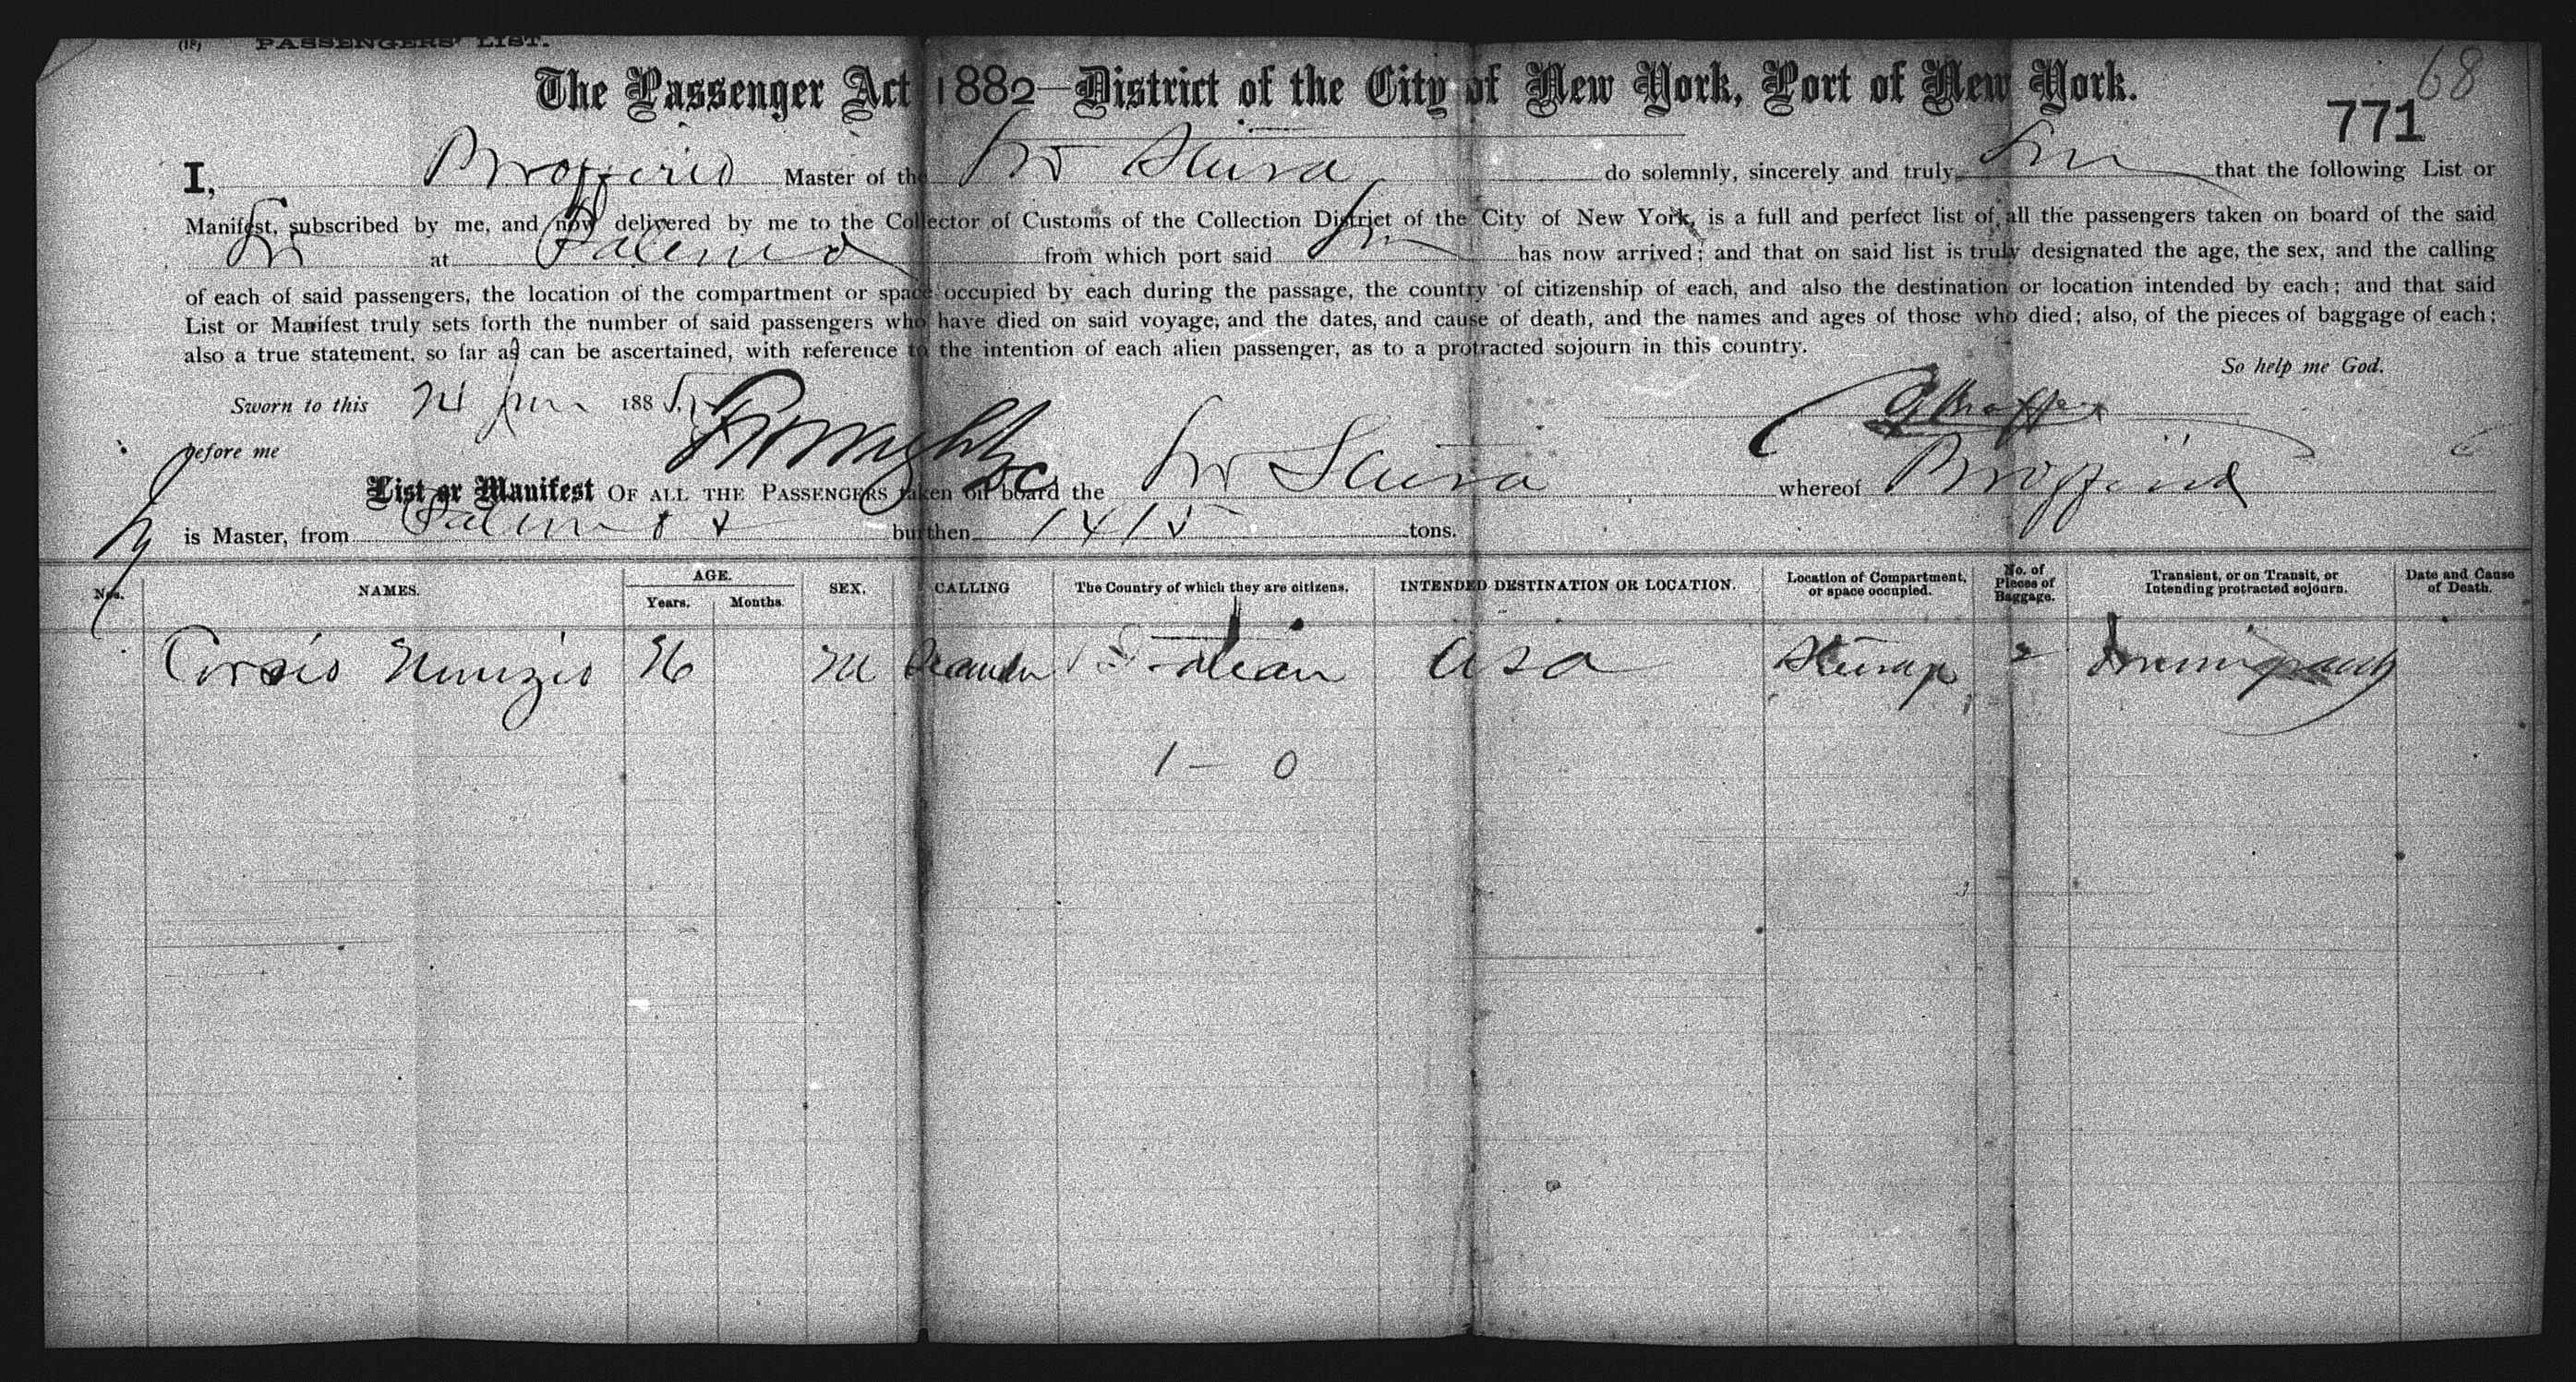 (18) PASSENGERS' LIST.
68
The Passenger Act 1882—District of the City of New York, Port of New York.
771
I, Brofferio Master of the Str Scura do solemnly, sincerely and truly that the following List or
Manifest, subscribed by me, and now delivered by me to the Collector of Customs of the Collection District of the City of New York, is a full and perfect list of all the passengers taken on board of the said
Str at Palermo from which port said has now arrived; and that on said list is truly designated the age, the sex, and the calling
of each of said passengers, the location of the compartment or space occupied by each during the passage, the country of citizenship of each, and also the destination or location intended by each; and that said
List or Manifest truly sets forth the number of said passengers who have died on said voyage, and the dates, and cause of death, and the names and ages of those who died; also, of the pieces of baggage of each;
also a true statement, so far as can be ascertained, with reference to the intention of each alien passenger, as to a protracted sojourn in this country.
So help me God.
Sworn to this 24 188
before me
List or Manifest OF ALL THE PASSENGERS taken on board the Str Scura whereof Brofferio
is Master, from Palermo burthen 1415 tons.
Nos. NAMES. AGE. Years. Months. SEX. CALLING The Country of which they are citizens. INTENDED DESTINATION OR LOCATION. Location of Compartment, or space occupied. No. of Pieces of Baggage. Transient, or on Transit, or Intending protracted sojourn. Date and Cause of Death.
Corsio Nunzio 26 M Italian USA Steerage 2
1 — 0